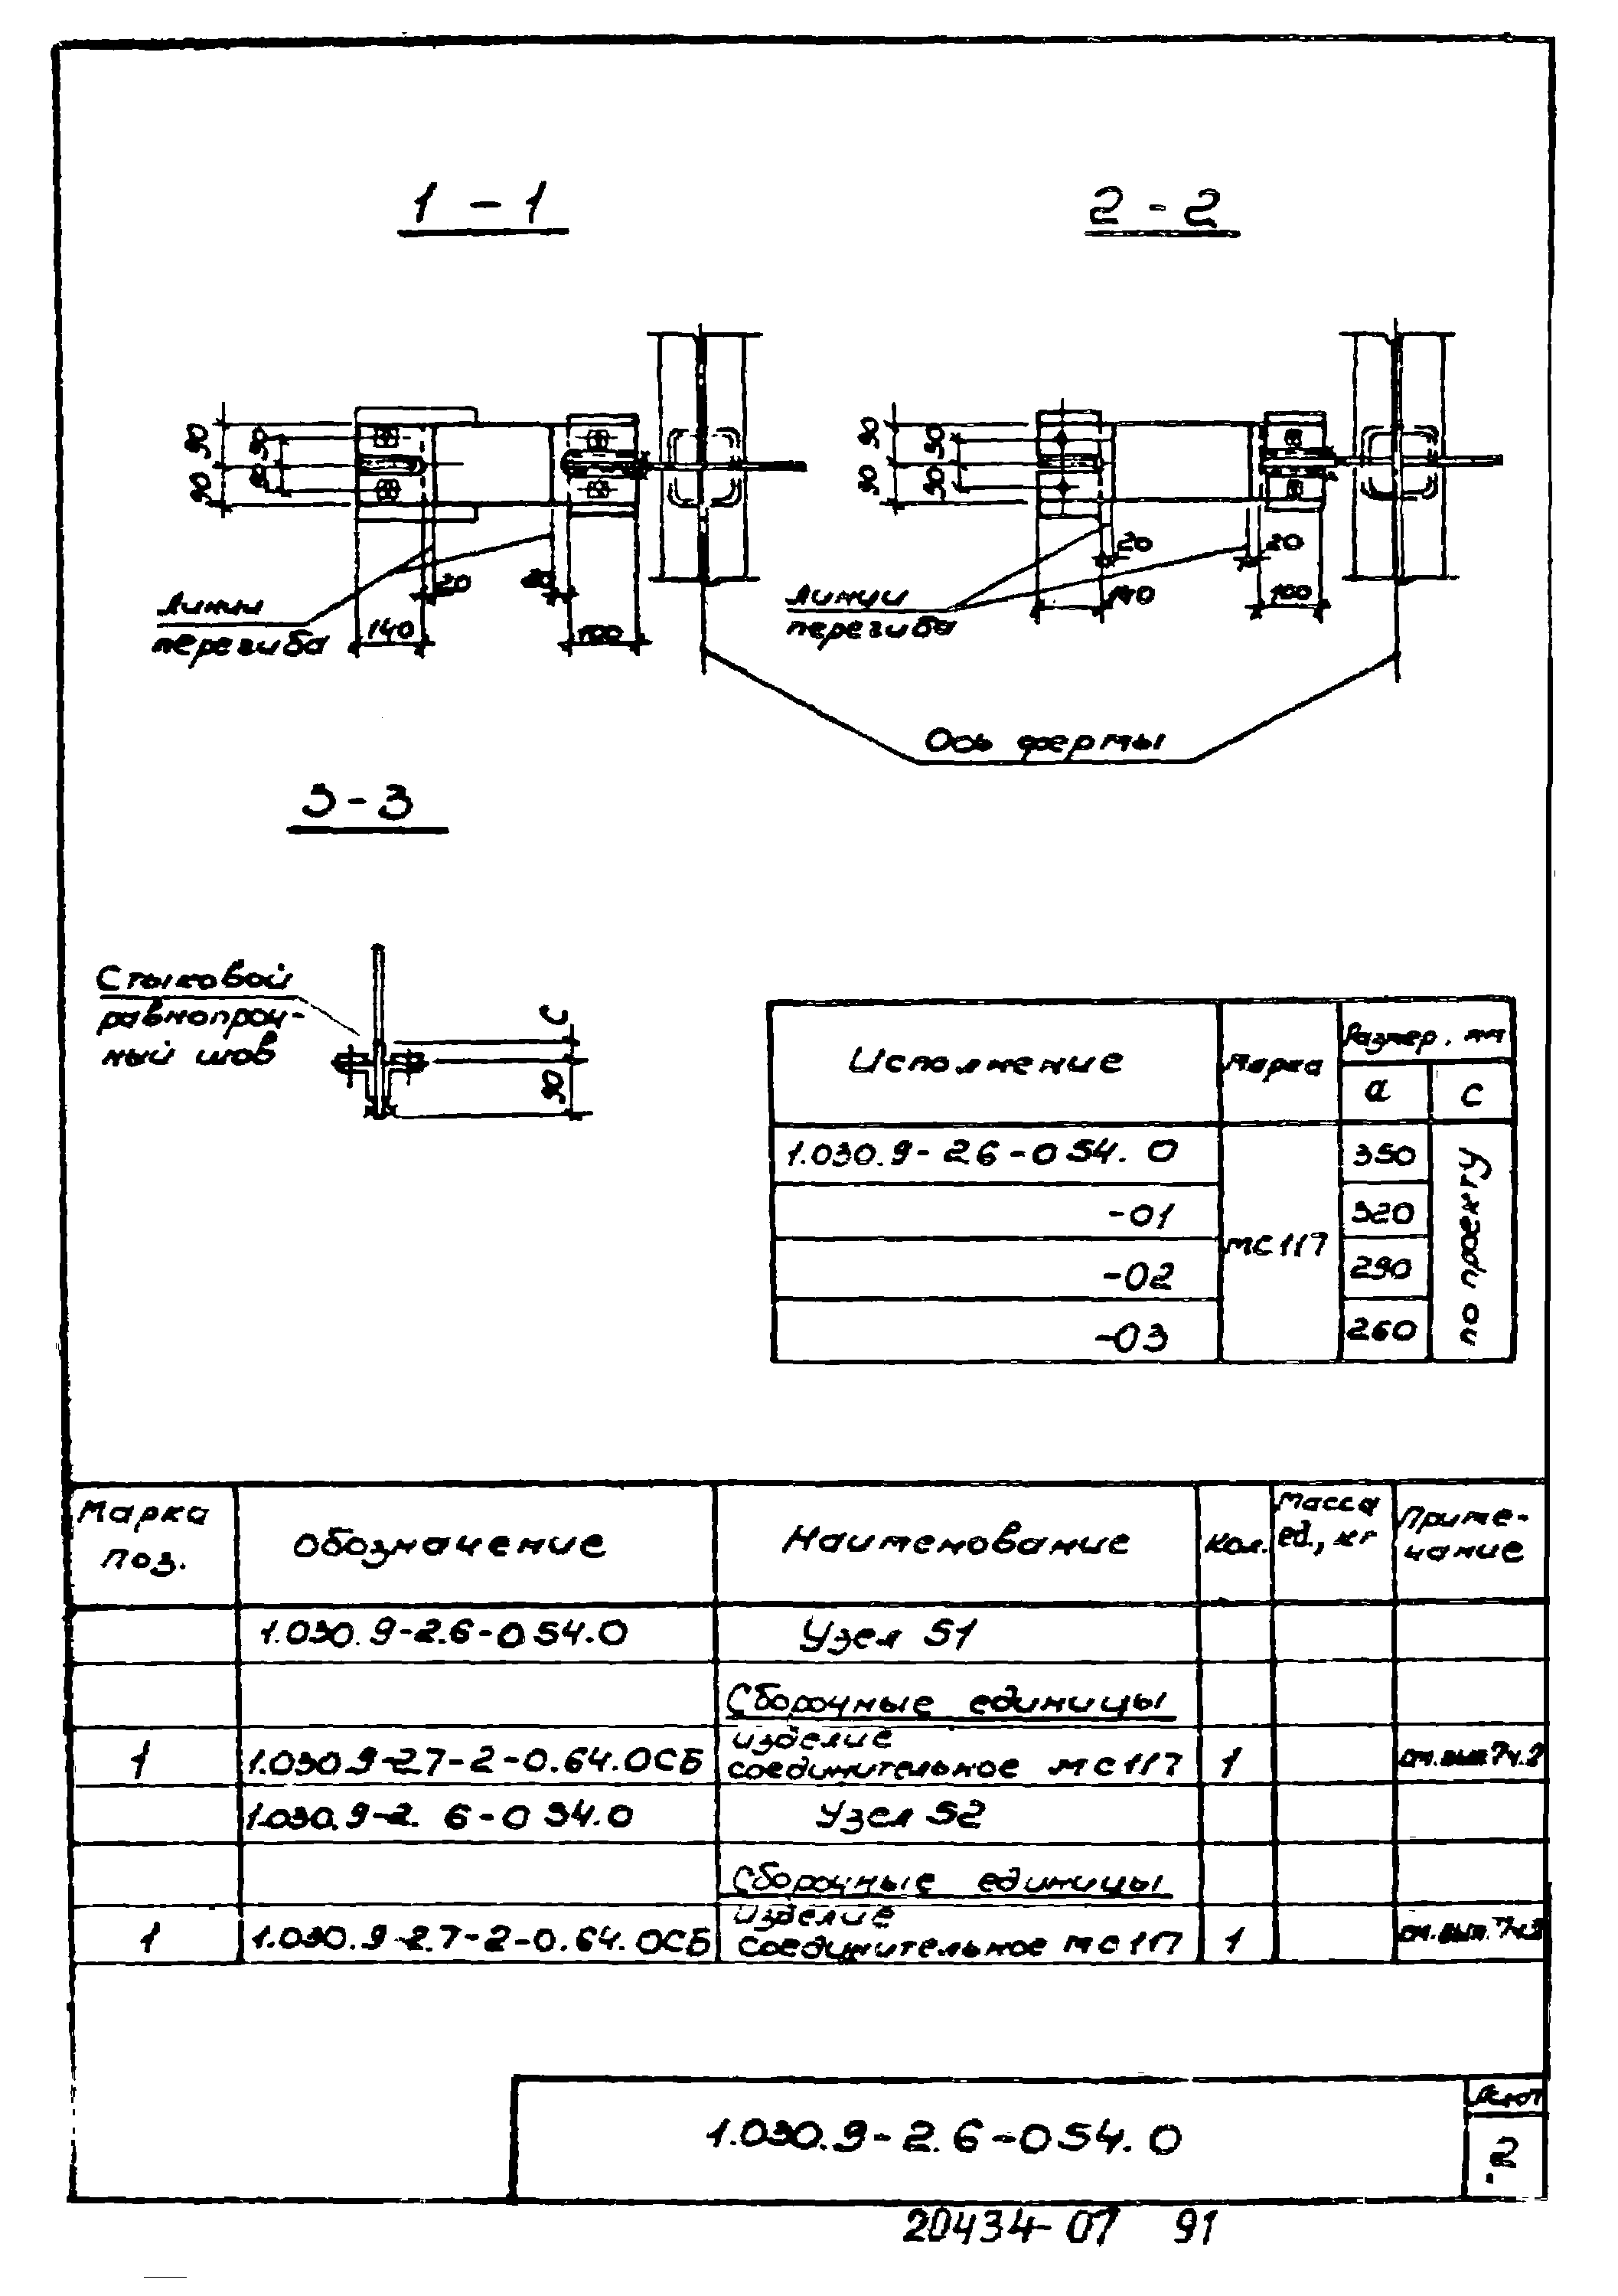 1 - 1
2 - 2
90
90
90
90
20
20
140
100
Линии
перегиба
90
90
90
90
20
20
140
100
Линии
перегиба
Ось фермы
3 - 3
Стыковой
равнопроч-
ный шов
С
90
Исполнение
Марка
Размер, мм
а
С
1.030.9-2.6-054.0
МС117
350
по проекту
-01
320
-02
290
-03
260
Марка
поз.
Обозначение
Наименование
Кол.
Масса
ед., кг
Приме-
чание
1.030.9-2.6-054.0
Узел 51
Сборочные единицы
1
1.030.9-2.7-2-0.64.0СБ
изделие
соединительное МС117
1
см.вып.7ч.2
1.030.9-2.6-054.0
Узел 52
Сборочные единицы
1
1.030.9-2.7-2-0.64.0СБ
изделие
соединительное МС117
1
см.вып.7ч.2
1.030.9-2.6-054.0
Лист
2
20434-07 91